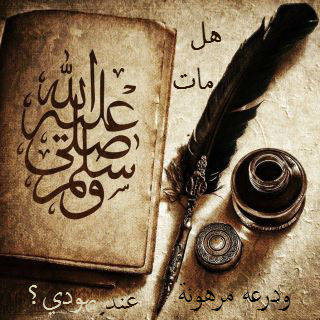 هل
مات
صلى الله عليه وسلم
ودرعه مرهونة عند يهودي ؟